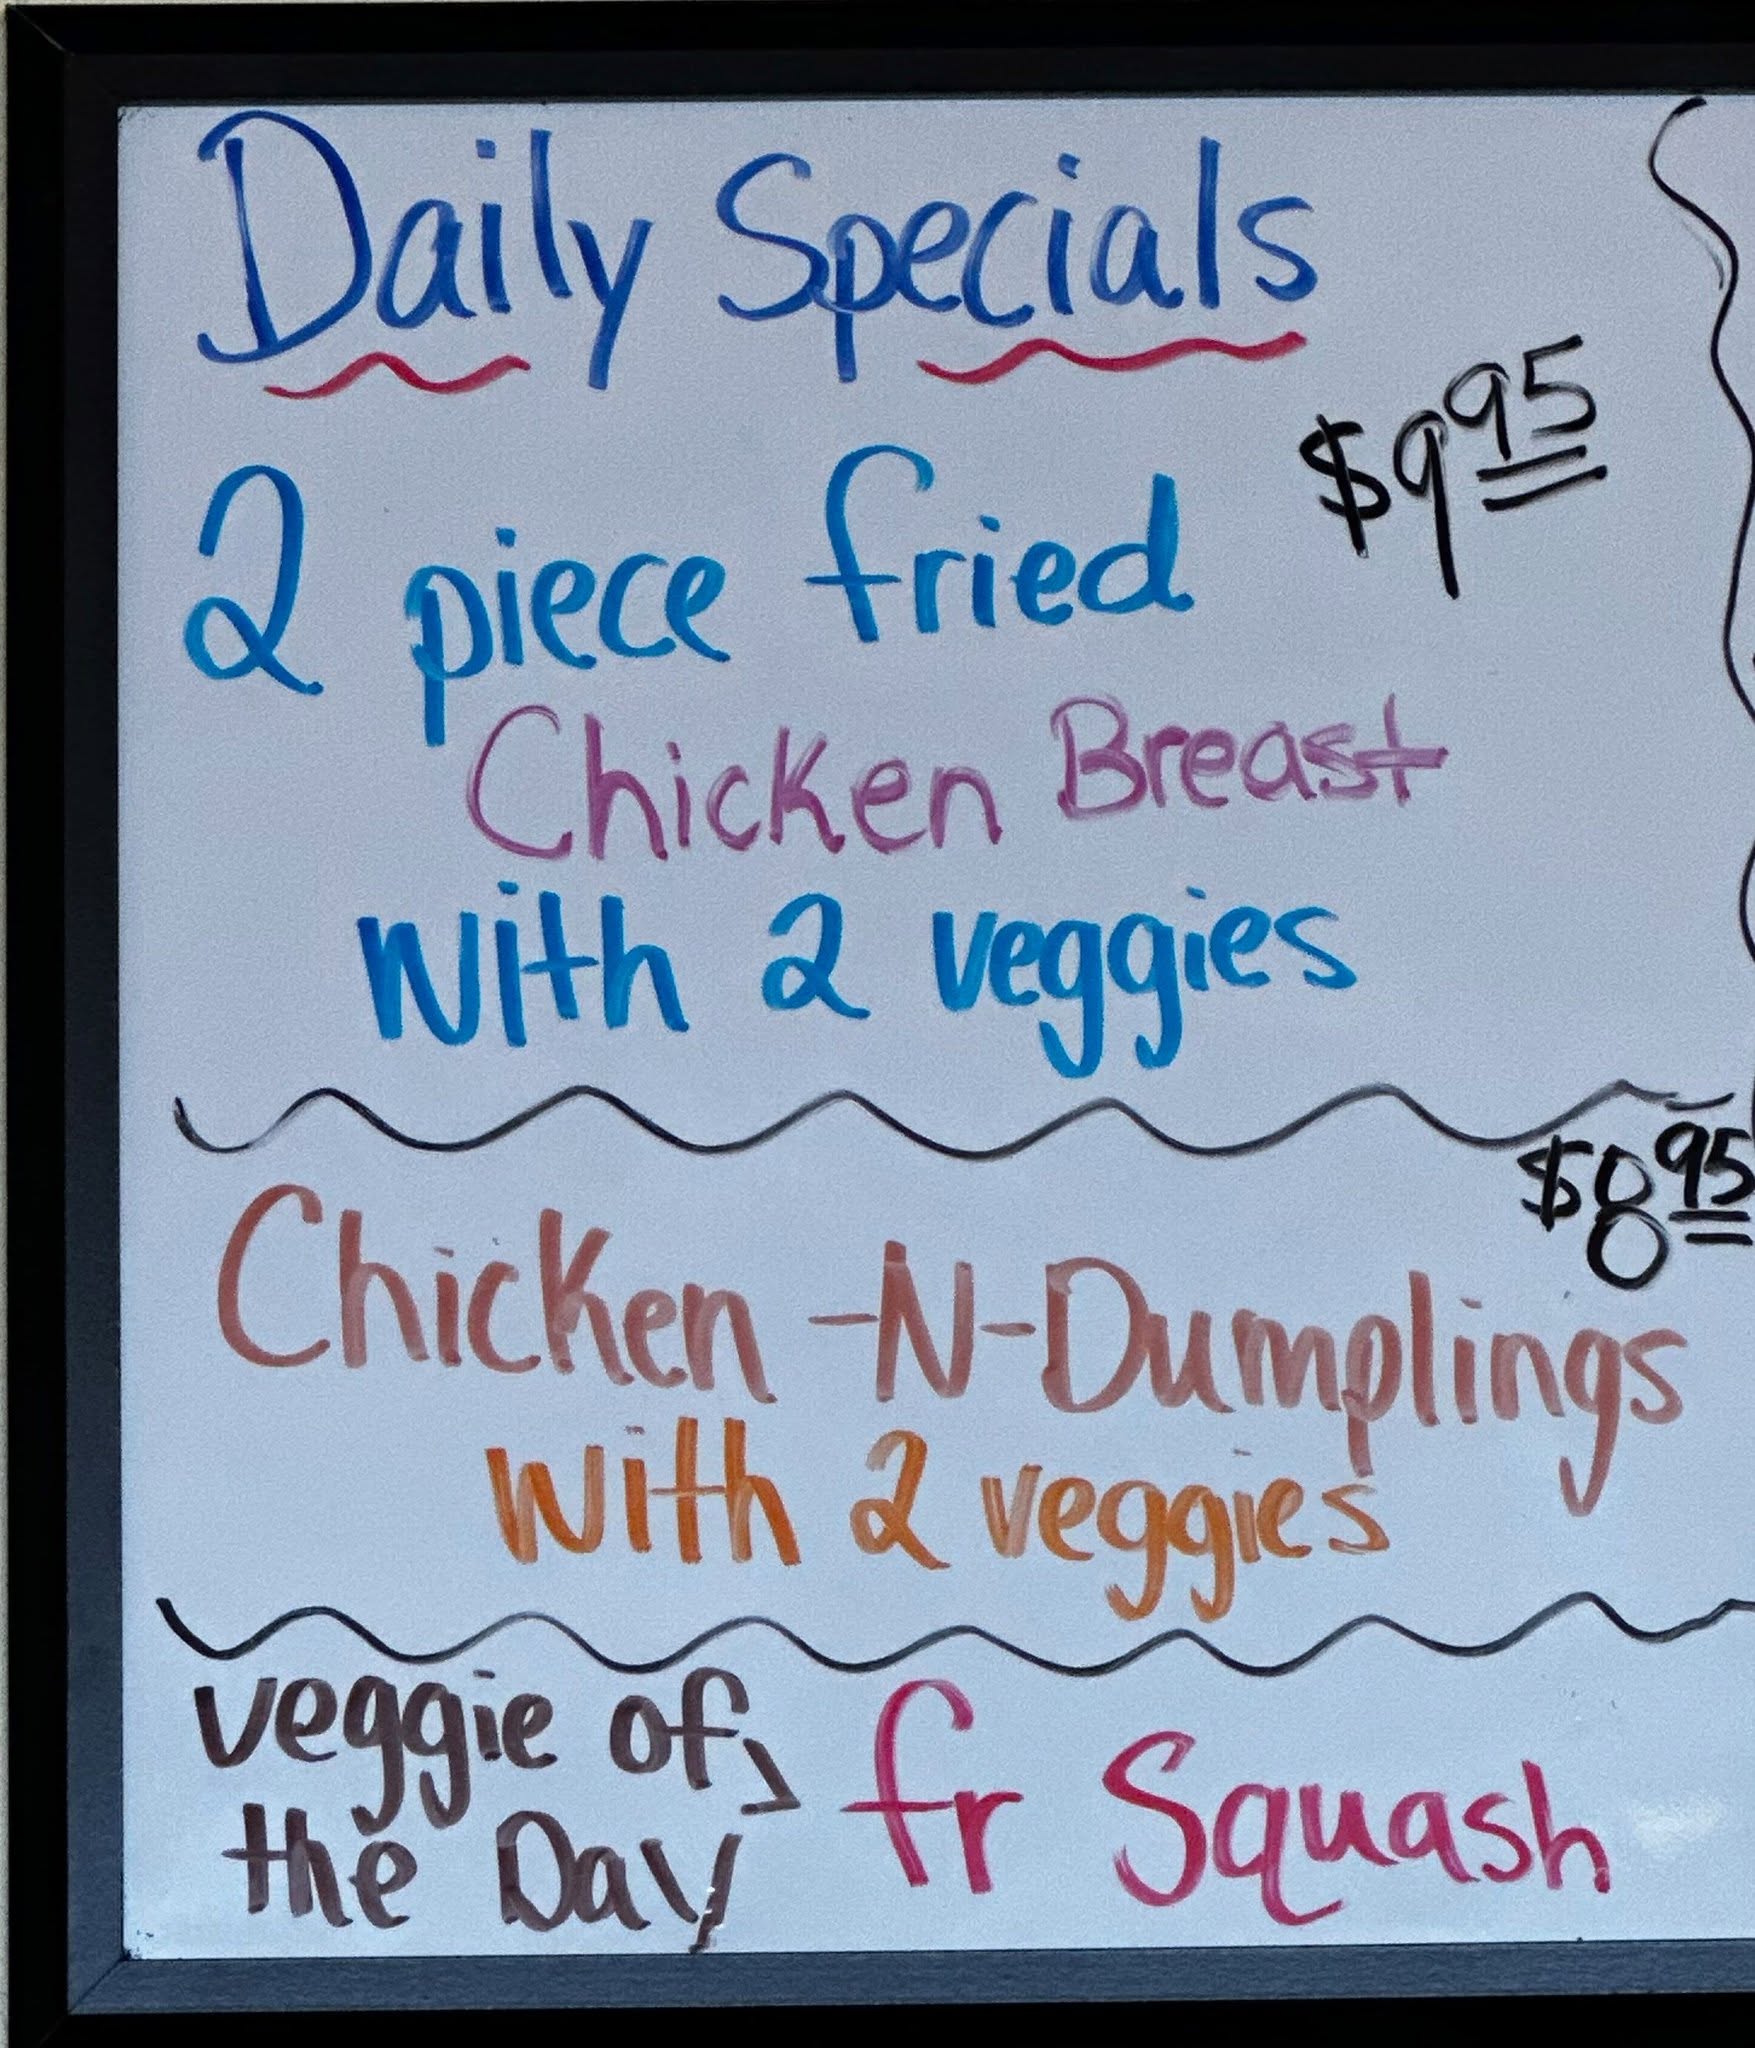 Daily Specials
$9.95
2 piece fried
Chicken Breast
with 2 veggies
$8.95
Chicken -N-Dumplings
with 2 veggies
veggie of
the Day
fr Squash